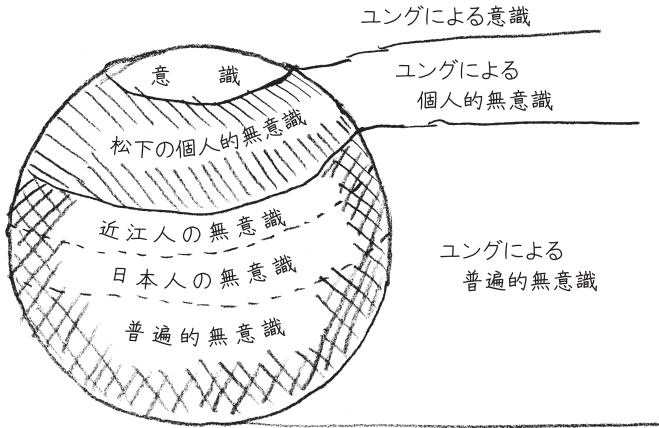 ユングによる意識
意識
ユングによる
個人的無意識
松下の個人的無意識
近江人の無意識
日本人の無意識
普遍的無意識
ユングによる
普遍的無意識